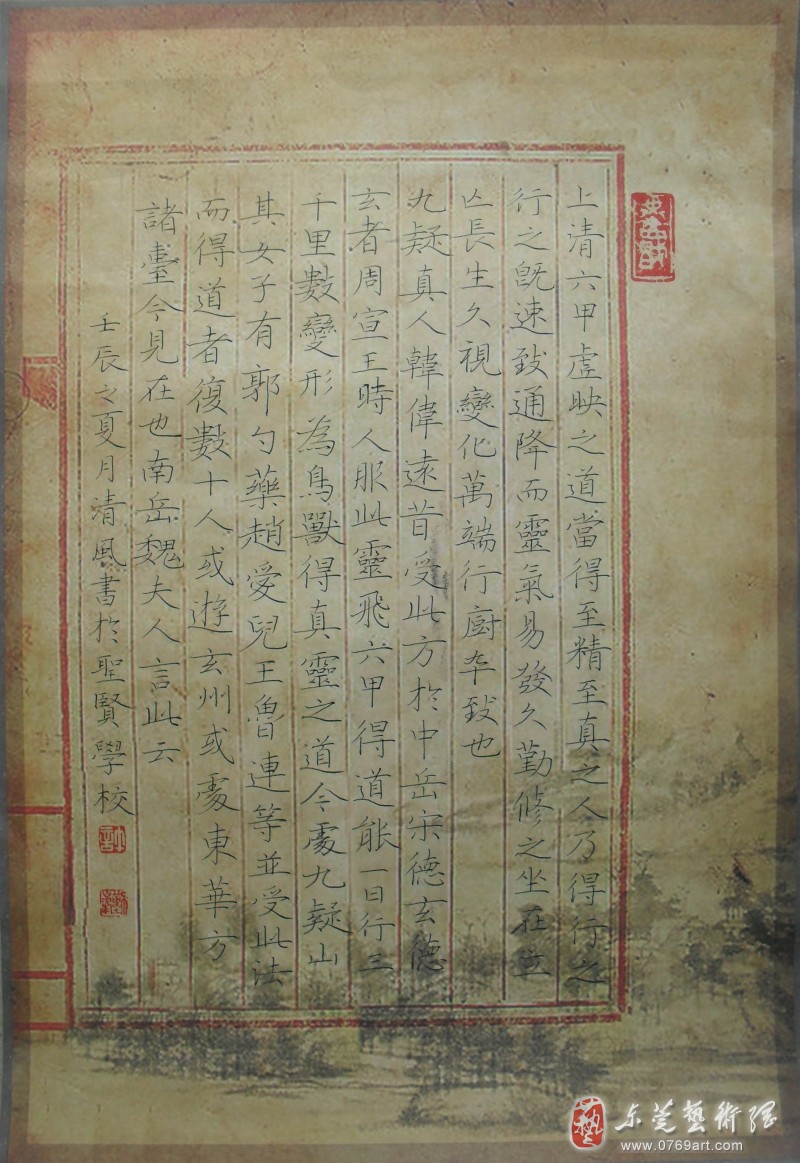 上清六甲虛映之道當得至精至真之人乃得行之
行之既速致通降而靈氣易發久勤修之坐在立
亾長生久視變化萬端行廚卒致也
九疑真人韓偉遠昔受此方於中岳宋德玄德
玄者周宣王時人服此靈飛六甲得道能一日行三
千里數變形為鳥獸得真靈之道今處九疑山
其女子有郭勺藥趙愛兒王魯連等並受此法
而得道者復數十人或遊玄州或處東華方
諸臺今見在也南岳魏夫人言此云
壬辰之夏月清風書於聖賢學校
东莞藝術網
www.0769art.com